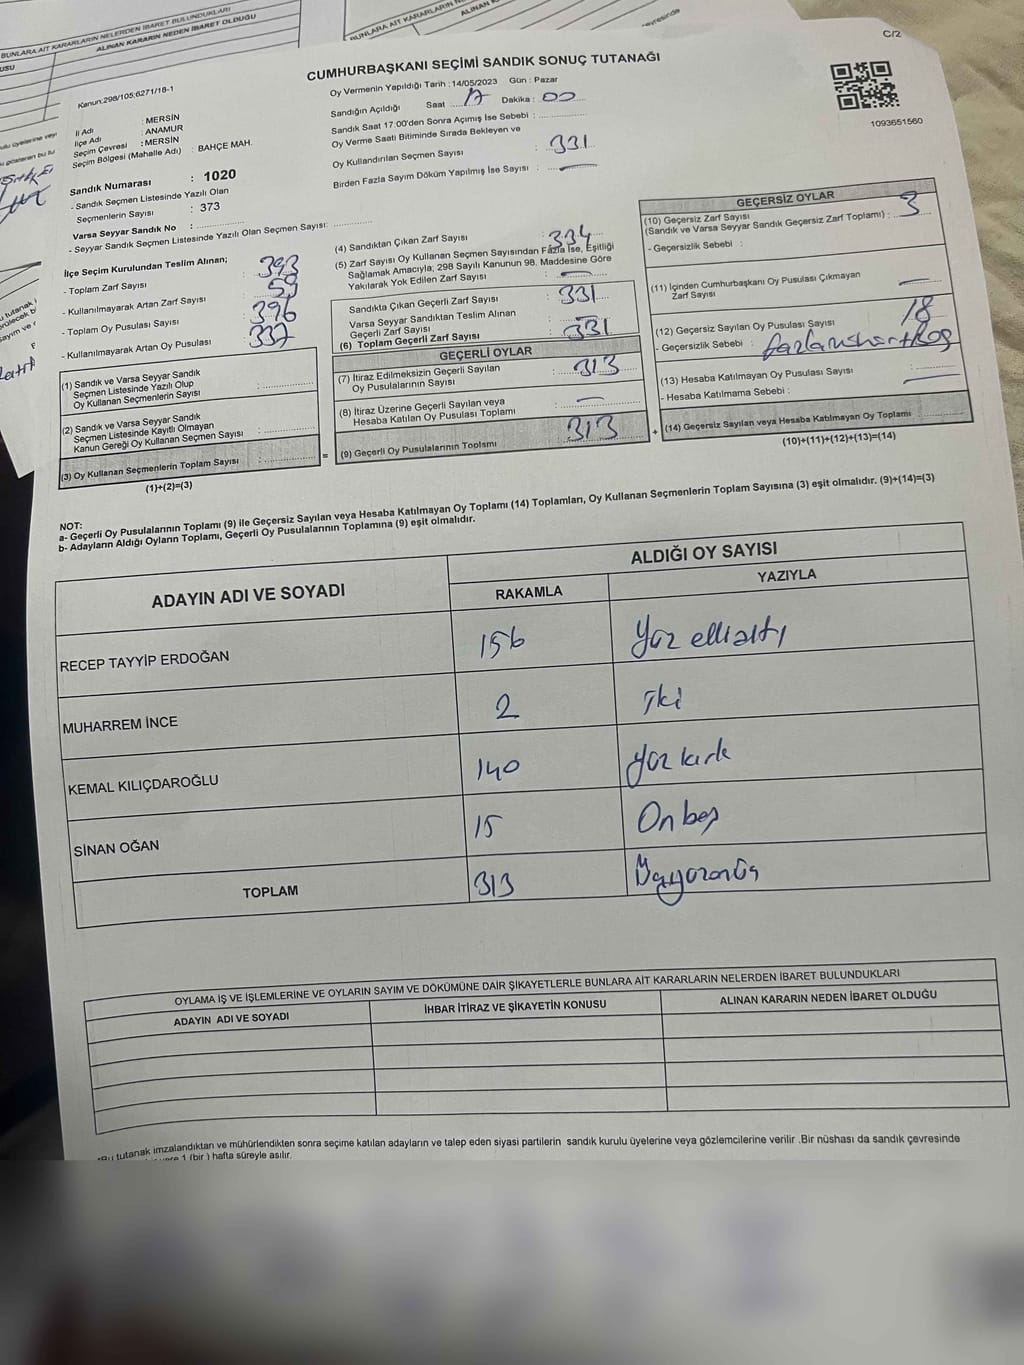 BUNLARA AİT KARARLARIN NELERDEN İBARET BULUNDUKLARI
ALINAN KARARIN NEDEN İBARET OLDUĞU
C/2
CUMHURBAŞKANI SEÇİMİ SANDIK SONUÇ TUTANAĞI
Kanun.298/105;6271/18-1
Oy Vermenin Yapıldığı Tarih : 14/05/2023 Gün : Pazar
Sandığın Açıldığı Saat 17 Dakika : 00
Sandık Saat 17:00'den Sonra Açımış İse Sebebi :
Oy Verme Saati Bitiminde Sırada Bekleyen ve
Oy Kullandırılan Seçmen Sayısı : 331
Birden Fazla Sayım Döküm Yapılmış İse Sayısı : —
1093651560
İl Adı : MERSİN
İlçe Adı : ANAMUR
Seçim Çevresi : MERSİN
Seçim Bölgesi (Mahalle Adı) : BAHÇE MAH.
Sandık Numarası : 1020
- Sandık Seçmen Listesinde Yazılı Olan
Seçmenlerin Sayısı : 373
Varsa Seyyar Sandık No :
- Seyyar Sandık Seçmen Listesinde Yazılı Olan Seçmen Sayısı:
İlçe Seçim Kurulundan Teslim Alınan;
- Toplam Zarf Sayısı : 393
- Kullanılmayarak Artan Zarf Sayısı : 59
- Toplam Oy Pusulası Sayısı : 396
- Kullanılmayarak Artan Oy Pusulası : 337
(1) Sandık ve Varsa Seyyar Sandık
Seçmen Listesinde Yazılı Olup
Oy Kullanan Seçmenlerin Sayısı :
(2) Sandık ve Varsa Seyyar Sandık
Seçmen Listesinde Kayıtlı Olmayan
Kanun Gereği Oy Kullanan Seçmen Sayısı :
(3) Oy Kullanan Seçmenlerin Toplam Sayısı :
(1)+(2)=(3)
=
(4) Sandıktan Çıkan Zarf Sayısı : 334
(5) Zarf Sayısı Oy Kullanan Seçmen Sayısından Fazla İse, Eşitliği
Sağlamak Amacıyla; 298 Sayılı Kanunun 98. Maddesine Göre
Yakılarak Yok Edilen Zarf Sayısı : —
Sandıkta Çıkan Geçerli Zarf Sayısı : 331
Varsa Seyyar Sandıktan Teslim Alınan
Geçerli Zarf Sayısı : —
(6) Toplam Geçerli Zarf Sayısı : 331
GEÇERLİ OYLAR
(7) İtiraz Edilmeksizin Geçerli Sayılan
Oy Pusulalarının Sayısı : 313
(8) İtiraz Üzerine Geçerli Sayılan veya
Hesaba Katılan Oy Pusulası Toplamı : —
(9) Geçerli Oy Pusulalarının Toplamı : 313
+
GEÇERSİZ OYLAR
(10) Geçersiz Zarf Sayısı
(Sandık ve Varsa Seyyar Sandık Geçersiz Zarf Toplamı) : 3
- Geçersizlik Sebebi :
(11) İçinden Cumhurbaşkanı Oy Pusulası Çıkmayan
Zarf Sayısı : —
(12) Geçersiz Sayılan Oy Pusulası Sayısı : 18
- Geçersizlik Sebebi :
(13) Hesaba Katılmayan Oy Pusulası Sayısı : —
- Hesaba Katılmama Sebebi :
(14) Geçersiz Sayılan veya Hesaba Katılmayan Oy Toplamı
(10)+(11)+(12)+(13)=(14)
NOT:
a- Geçerli Oy Pusulalarının Toplamı (9) ile Geçersiz Sayılan veya Hesaba Katılmayan Oy Toplamı (14) Toplamları, Oy Kullanan Seçmenlerin Toplam Sayısına (3) eşit olmalıdır. (9)+(14)=(3)
b- Adayların Aldığı Oyların Toplamı, Geçerli Oy Pusulalarının Toplamına (9) eşit olmalıdır.
ADAYIN ADI VE SOYADI
ALDIĞI OY SAYISI
RAKAMLA YAZIYLA
RECEP TAYYİP ERDOĞAN 156 Yüz ellialtı
MUHARREM İNCE 2 İki
KEMAL KILIÇDAROĞLU 140 Yüz kırk
SİNAN OĞAN 15 On beş
TOPLAM 313 Üçyüzonüç
OYLAMA İŞ VE İŞLEMLERİNE VE OYLARIN SAYIM VE DÖKÜMÜNE DAİR ŞİKAYETLERLE BUNLARA AİT KARARLARIN NELERDEN İBARET BULUNDUKLARI
ADAYIN ADI VE SOYADI İHBAR İTİRAZ VE ŞİKAYETİN KONUSU ALINAN KARARIN NEDEN İBARET OLDUĞU
*Bu tutanak imzalandıktan ve mühürlendikten sonra seçime katılan adayların ve talep eden siyasi partilerin sandık kurulu üyelerine veya gözlemcilerine verilir .Bir nüshası da sandık çevresinde
1 (bir ) hafta süreyle asılır.